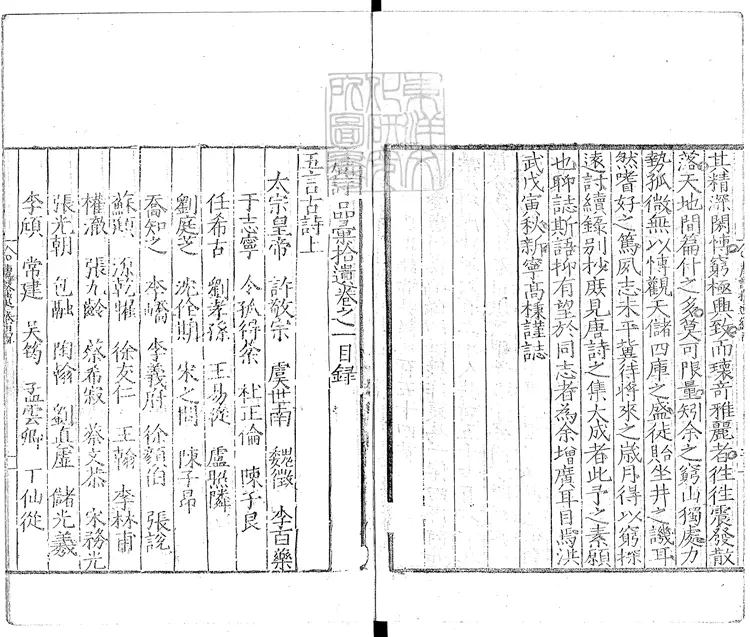 甚精深閎博窮極興致而瓌奇雅麗者往往震發散
落天地間篇什之多莫可限量矧余之窮山獨處力
勢孤微無以博觀天儲四庫之盛徒貽坐井之譏耳
然嗜好之篤夙志未平冀待將來之歲月得以窮探
遠討續錄別抄庶見唐詩之集大成者此予之素願
也聊誌斯語抑有望於同志者為余增廣耳目焉洪
武戊寅秋新寧高棅謹誌
唐詩品彙拾遺卷之一目録
五言古詩上
太宗皇帝 許敬宗 虞世南 魏徵 李百樂
于志寧 令狐德棻 杜正倫 陳子良
任希古 劉孝孫 王易從 盧照隣
劉庭芝 沈佺期 宋之問 陳子昂
喬知之 李嶠 李義府 徐顥伯 張說
蘇頲 源乾曜 徐友仁 王翰 李林甫
權澈 張九齡 蔡希寂 蔡文恭 宋務光
張光朝 包融 陶翰 劉眘虛 儲光羲
李頎 常建 吳筠 孟雲卿 丁仙芝
東洋文化研究所圖書